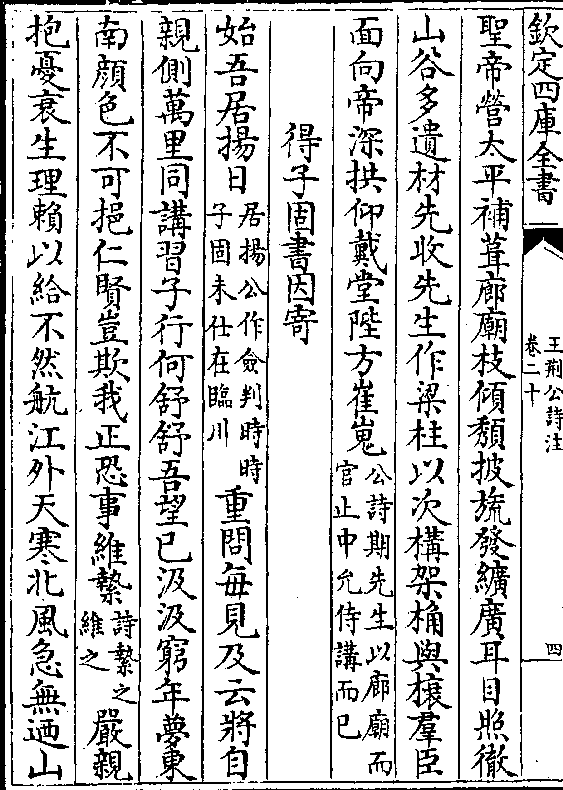 欽定四庫全書
王荆公詩注
卷二十
四
聖帝營太平補葺廊廟枝傾頽披旒發纊廣耳目照徹
山谷多遺材先收先生作梁柱以次構架桷與榱羣臣
面向帝深拱仰戴堂陛方崔嵬公詩期先生以廊廟而官止中允侍講而已
得子固書因寄
始吾居揚日居揚公作僉判時時子固未仕在臨川重問每見及云將自
親側萬里同講習子行何舒舒吾望已汲汲窮年夢東
南顔色不可挹仁賢豈欺我正恐事維縶詩縶之維之嚴親
抱憂衰生理賴以給不然航江外天寒北風急無廼山